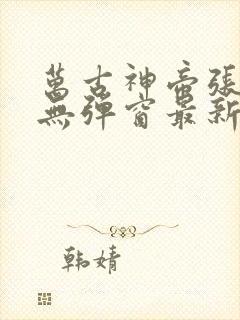 萬古神帝張
無彈窗最新
韩婧